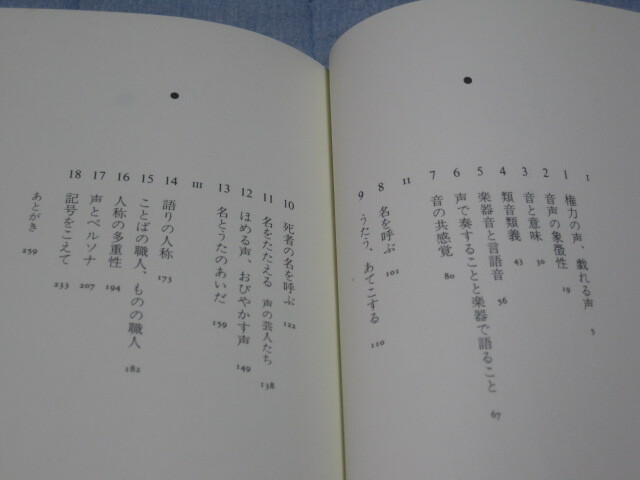 I
1 権力の声、戯れる声 5
2 音声の象徴性 19
3 音と意味 30
4 類音類義 43
5 楽器音と言語音 56
6 声で奏することと楽器で語ること 67
7 音の共感覚 80
II
8 名を呼ぶ 102
9 うたう、あてこする 110
10 死者の名を呼ぶ 122
11 名をたたえる 声の芸人たち 138
12 ほめる声、おびやかす声 149
13 名とうたのあいだ 159
III
14 語りの人称 173
15 ことばの職人、ものの職人 182
16 人称の多重性 194
17 声とペルソナ 207
18 記号をこえて 233
あとがき 259